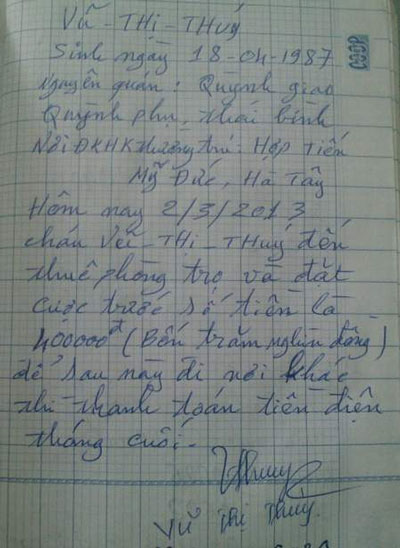 Vũ - THị - THúy
Sinh ngày 18-04-1987
Nguyên quán : Quỳnh giao
Quỳnh phụ, thái bình
Nơi ĐKHK thường trú : Hợp Tiến
Mỹ Đức, Hà Tây
Hôm nay 2/3/2013
cháu Vũ - THị - THúy đến
thuê phòng trọ và đặt
cược trước số tiền là
400000đ (Bốn trăm nghìn đồng)
để sau này đi nơi khác
thì thanh toán tiền điện
tháng cuối.
Thúy
Vũ Thị Thúy.